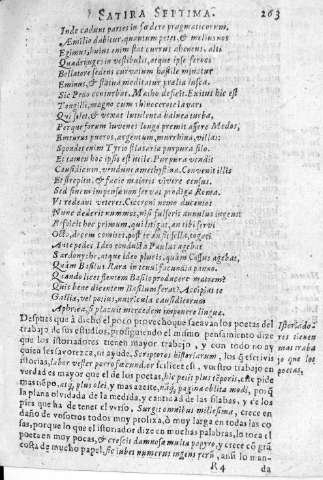 SATIRA SEPTIMA. 263
Inde cadunt partes in fœdere pragmaticorum,
Æmilio dabitur, quantum petet, & melius nos
Egimus, huius enim stat currus aheneus, alti
Quadriiuges in vestibulis, atque ipse feroci
Bellatore sedens curvatum hastile minatur
Eminus, & statua meditatur prælia lusca.
Sic Pedo conturbat, Matho deficit. Exitus hic est
Tongilli, magno cum rhinocerote lavari
Qui solet, & vexat lutulenta balnea turba,
Perque forum iuvenes longo premit assere Medos,
Empturus pueros, argentum, murrhina, villas:
Spondet enim Tyrio stlataria purpura filo.
Et tamen hoc ipsis est utile. Purpura vendit
Causidicum, vendunt amethystina. Convenit illis
Et strepitu, & facie maioris vivere census.
Sed finem impensæ non servat prodiga Roma.
Vt redeant veteres, Ciceroni nemo ducentos
Nunc dederit nummos, nisi fulserit annulus ingens
Respicit hoc primum, qui litigat, an tibi servi
Octo, decem comites, post te an sit sella, togati
Ante pedes Ideo conducta Paulus agebat
Sardonyche, atque ideo pluris, quàm Cossus agebat,
Quàm Basilus Rara in tenui facundia panno.
Quando licet flentem Basilo producere matrem?
Quis bene dicentem Basilum ferat? Accipiat te
Gallia, vel potius, nutricula causidicorum
Aphrica, si placuit mercedem imponere linguæ.
Despues que à dicho el poco provecho que sacavan los poetas del
trabajo de sus estudios, prosiguiendo el mismo pensamiento dize
que los istoriadores tienen mayor trabajo, y con todo no ay
quien les favorezca, ni ayude,
verdad es mayor que el de los poetas, hic petit plus temporis, este pide
mas tiepo, atq; plus olei, y mas azeite, nãq; pagina oblita modi, porq̃
la plana olvidada de la medida, y cantidad de las silabas, y de los
pica que ha de tener el verso, Surgit omnibus millesima, crece en
daño de vosotros todos muy prolixa, ò muy larga en todas las co
sas, porque lo que el istoriador dize en muchas palabras, lo toca el
poeta en muy pocas, & crescit damnosa multa papyro, y crece cõ grã
costa de mucho papel, sic iubet numerus ingens rerũ, assi lo man-
R 4 da
Istoriado-
res tienen
mas traba
jo que los
poetas,